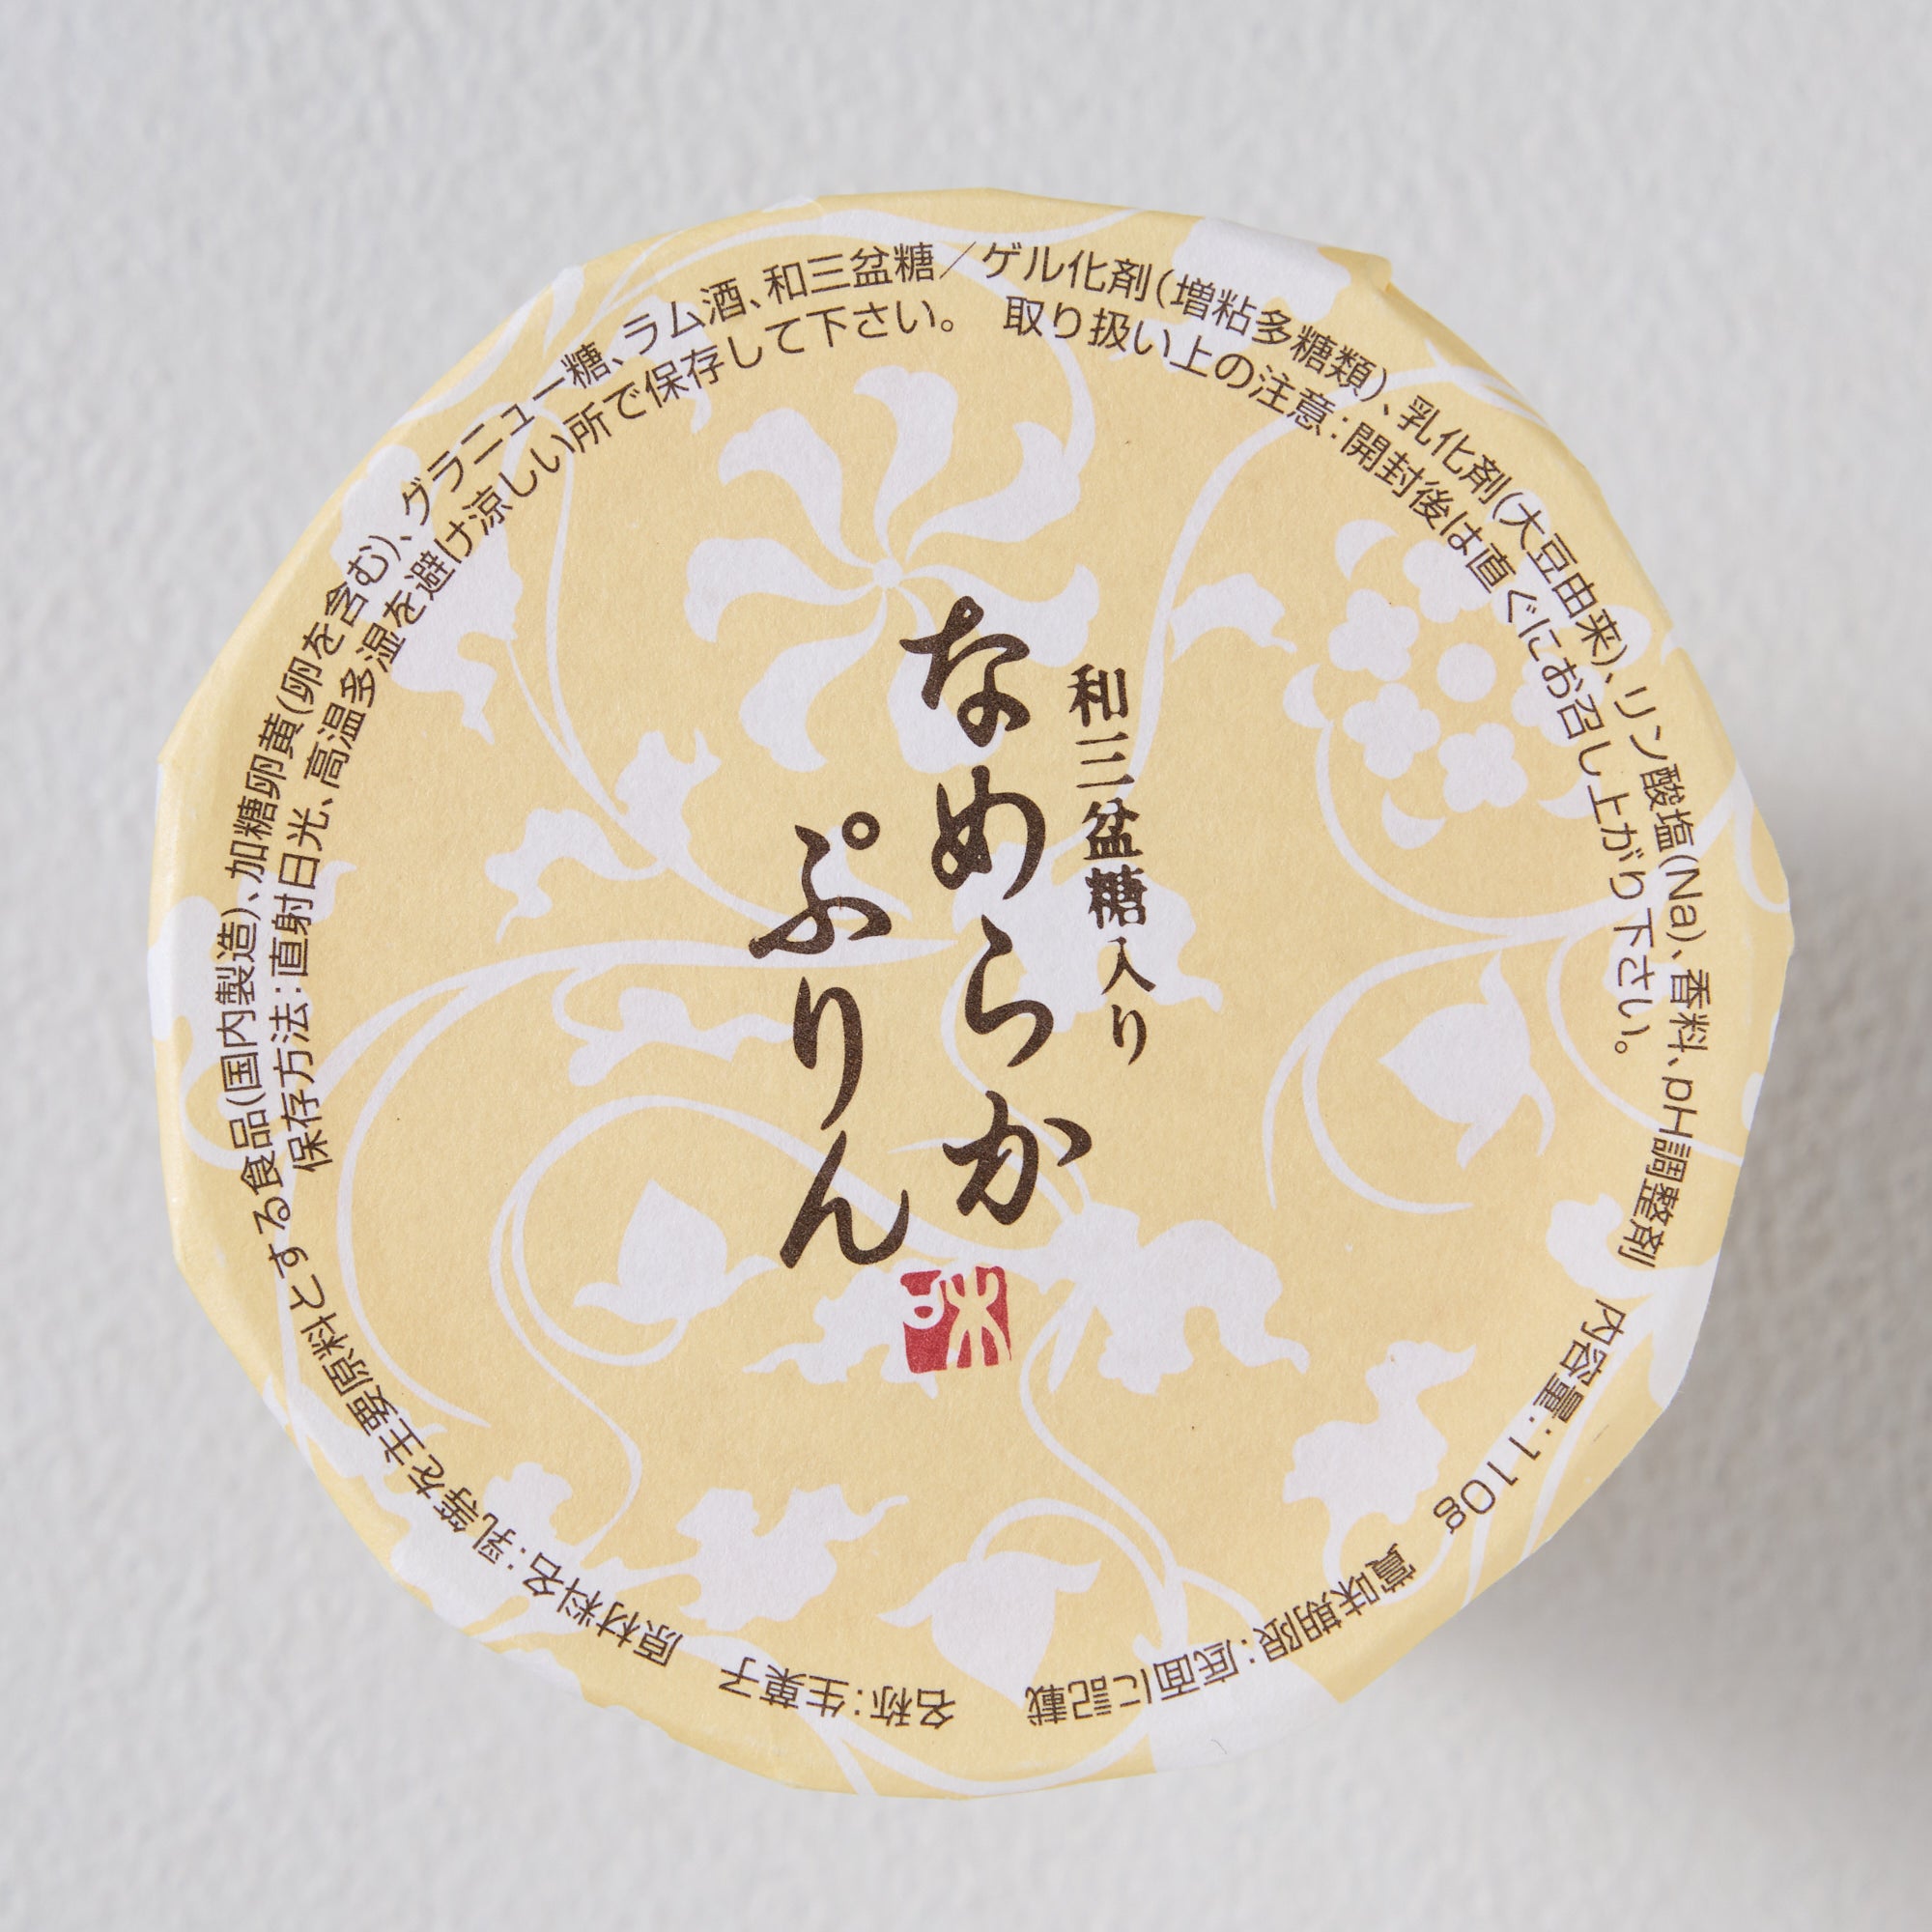 和三盆糖入り
なめらか
ぷりん
味
名称:生菓子　原材料名:乳等を主要原料とする食品(国内製造)、加糖卵黄(卵を含む)、グラニュー糖、ラム酒、和三盆糖／ゲル化剤(増粘多糖類)、乳化剤(大豆由来)、リン酸塩(Na)、香料、pH調整剤　内容量:110g　賞味期限:底面に記載
保存方法:直射日光、高温多湿を避け涼しい所で保存して下さい。　取り扱い上の注意:開封後は直ぐにお召し上がり下さい。